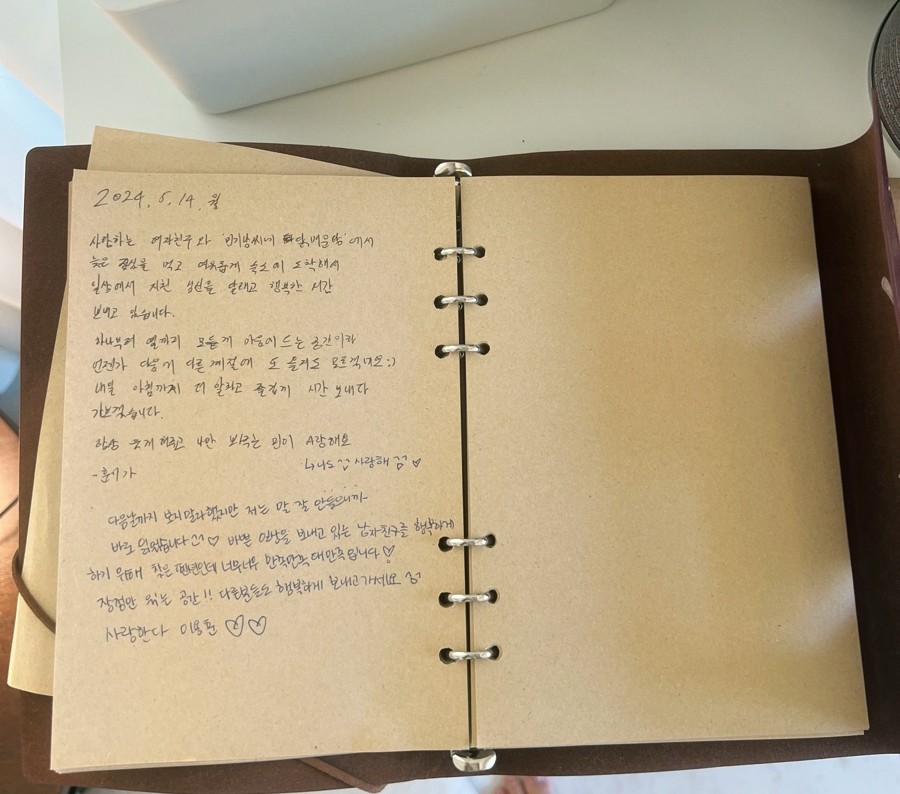 2024. 5. 14. 월
사랑하는 여자친구와 '민기방씨네 닭매운탕'에서
늦은 점심을 먹고 여유롭게 숙소에 도착해서
일상에서 지친 심신을 달래고 행복한 시간
보내고 있습니다.
하나부터 열까지 모든게 마음에 드는 공간이라
언젠가 다음에 다른 계절에 또 들려도 모르겠네요:)
내일 아침까지 더 알차고 즐겁게 시간 보내다
가보겠습니다.
항상 웃게 해주고 나만 봐주는 사랑해요
-훈이가
사랑해
다음날까지 보지말라했지만 저는 말 잘 안들으니까
바로 읽었습니다 ♡ 바쁜 일상을 보내고 있는 남자친구를 행복하게
하기 위해 찾은 펜션인데 너무너무 만족만족 대만족입니다♡
장점만 있는 공간!! 다들분들도 행복하게 보내고가세요
사랑한다 이용훈 ♡♡